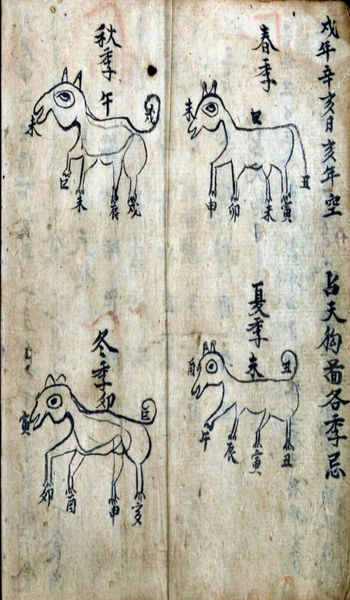 戌年辛亥日亥年空
占天狗啚各季忌
春季
未
巳
丑
申
卯
未
寅
夏季
未
丑
酉
午
辰
寅
丑
秋季
午
未
巳
未
辰
戌
冬季
卯
巳
寅
卯
酉
申
亥